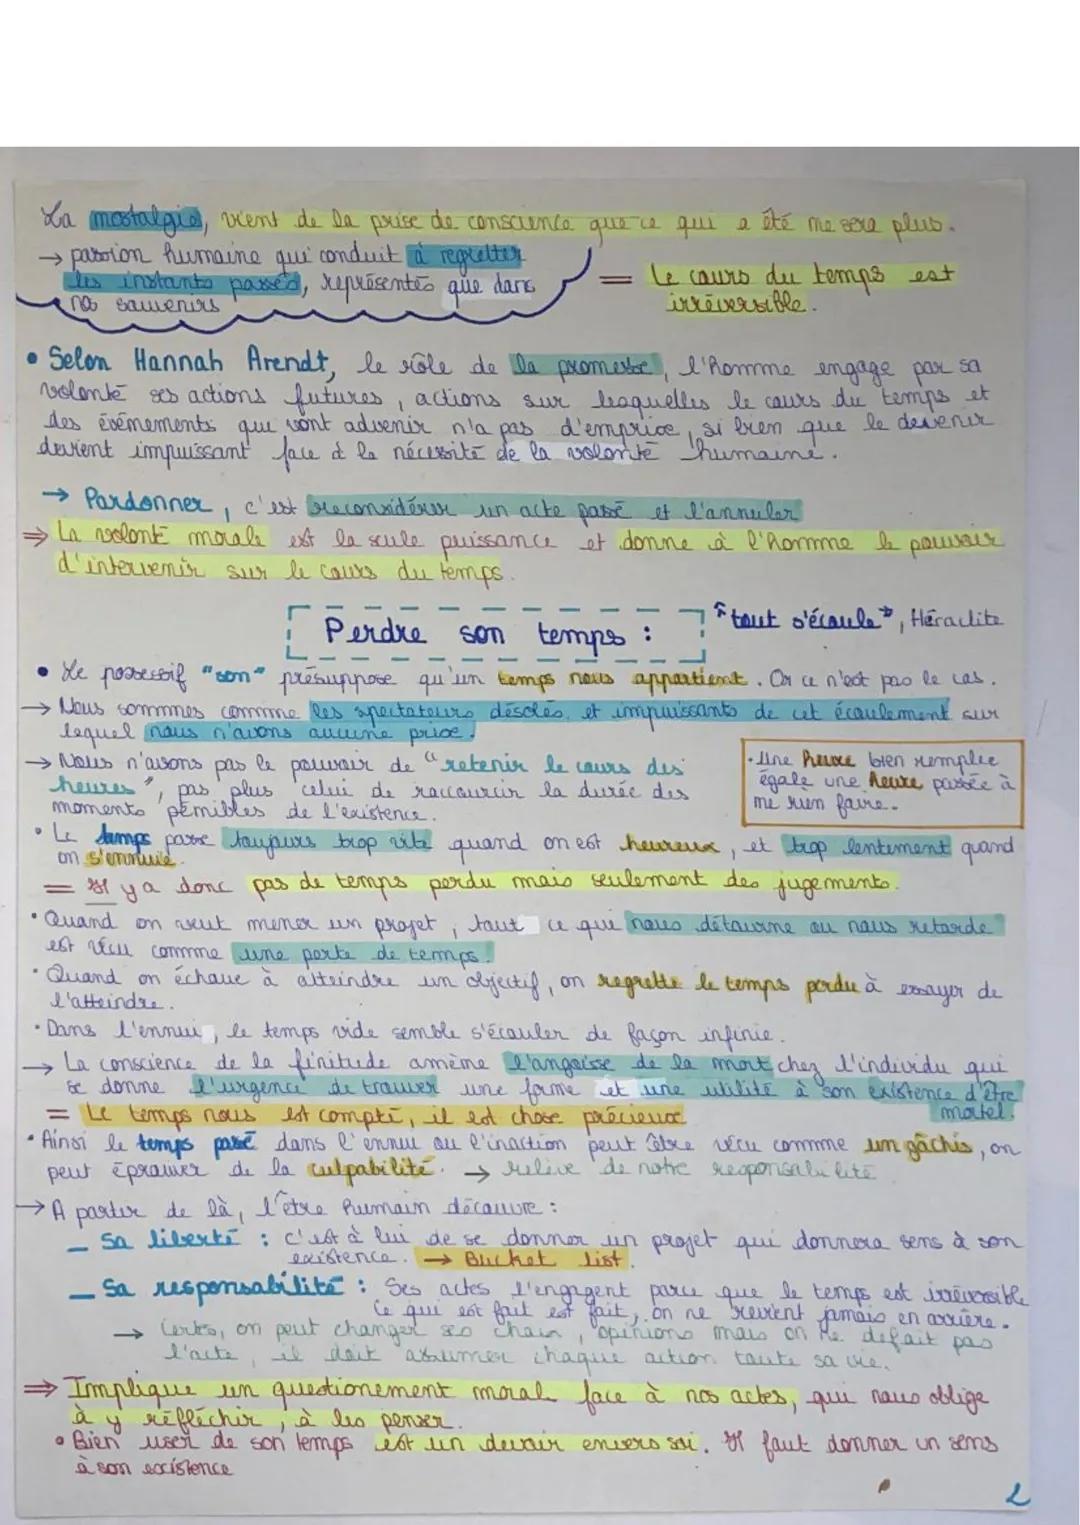 La nostalgie, vient de la prise de conscience que ce qui a été ne sera plus.
→ passion humaine qui conduit à regretter
les instants passés, représentés que dans
nos souvenirs
= le cours du temps est
irréversible.
• Selon Hannah Arendt, le rôle de la promesse, l'homme engage par sa
volonté ses actions futures, actions sur lesquelles le cours du temps et
des événements qui vont advenir n'a pas d'emprise, si bien que le devenir
devient impuissant face à la nécessité de la volonté humaine.
→ Pardonner, c'est reconsidérer un acte passé et l'annuler
⇒ La volonté morale est la seule puissance et donne à l'homme le pouvoir
d'intervenir sur le cours du temps.
Perdre son temps :
"tout s'écoule", Héraclite
• Le possessif "son" présuppose qu'un temps nous appartient. Or ce n'est pas le cas.
→ Nous sommes comme les spectateurs désolés et impuissants de cet écoulement sur
lequel nous n'avons aucune prise.
→ Nous n'avons pas le pouvoir de "retenir le cours des
heures", pas plus celui de raccourcir la durée des
moments pénibles de l'existence.
• Une heure bien remplie
égale une heure passée à
ne rien faire.
• Le temps passe toujours trop vite quand on est heureux, et trop lentement quand
on s'ennuie.
= Il y a donc pas de temps perdu mais seulement des jugements.
• Quand on veut mener un projet, tout ce qui nous détourne ou nous retarde
est vécu comme une perte de temps.
• Quand on échoue à atteindre un objectif, on regrette le temps perdu à essayer de
l'atteindre.
• Dans l'ennui, le temps vide semble s'écouler de façon infinie.
→ La conscience de la finitude amène l'angoisse de la mort chez l'individu qui
se donne l'urgence de trouver une forme et une utilité à son existence d'être
mortel.
= Le temps nous est compté, il est chose précieux
• Ainsi le temps passé dans l'ennui ou l'inaction peut être vécu comme un gâchis, on
peut éprouver de la culpabilité. → relève de notre responsabilité
→ A partir de là, l'être humain découvre :
– Sa liberté : c'est à lui de se donner un projet qui donnera sens à son
existence. → Bucket list.
– Sa responsabilité : Ses actes l'engagent parce que le temps est irréversible
Ce qui est fait est fait, on ne revient jamais en arrière.
→ Certes, on peut changer ses choix, opinions mais on ne défait pas
l'acte, il doit assumer chaque action toute sa vie.
⇒ Implique un questionement moral face à nos actes, qui nous oblige
à y réfléchir, à les penser.
• Bien user de son temps est un devoir envers soi. Il faut donner un sens
à son existence
2